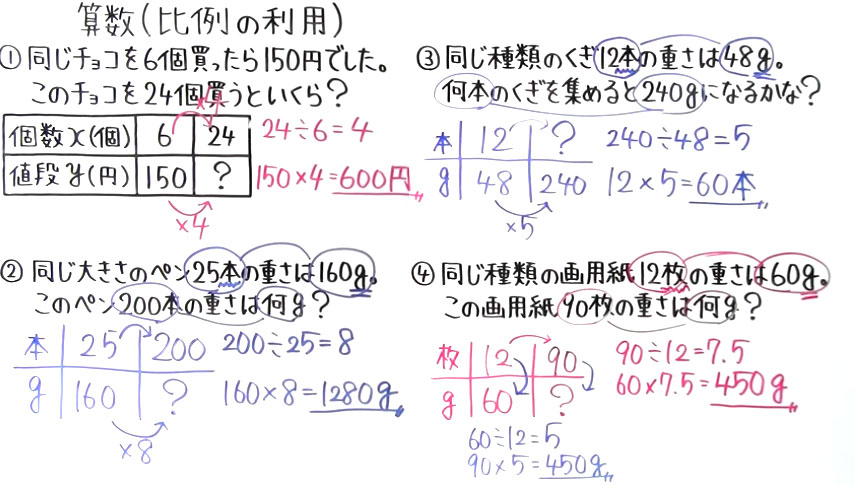 算数(比例の利用)
① 同じチョコを6個買ったら150円でした。
このチョコを24個買うといくら?
×4
個数x(個) 6 24
値段y(円) 150 ?
×4
24÷6=4
150×4=600円
② 同じ大きさのペン25本の重さは160g。
このペン200本の重さは何g?
本 25 200
g 160 ?
×8
200÷25=8
160×8=1280g
③ 同じ種類のくぎ12本の重さは48g。
何本のくぎを集めると240gになるかな?
本 12 ?
g 48 240
×5
240÷48=5
12×5=60本
④ 同じ種類の画用紙12枚の重さは60g。
この画用紙90枚の重さは何g?
枚 12 90
g 60 ?
90÷12=7.5
60×7.5=450g
60÷12=5
90×5=450g